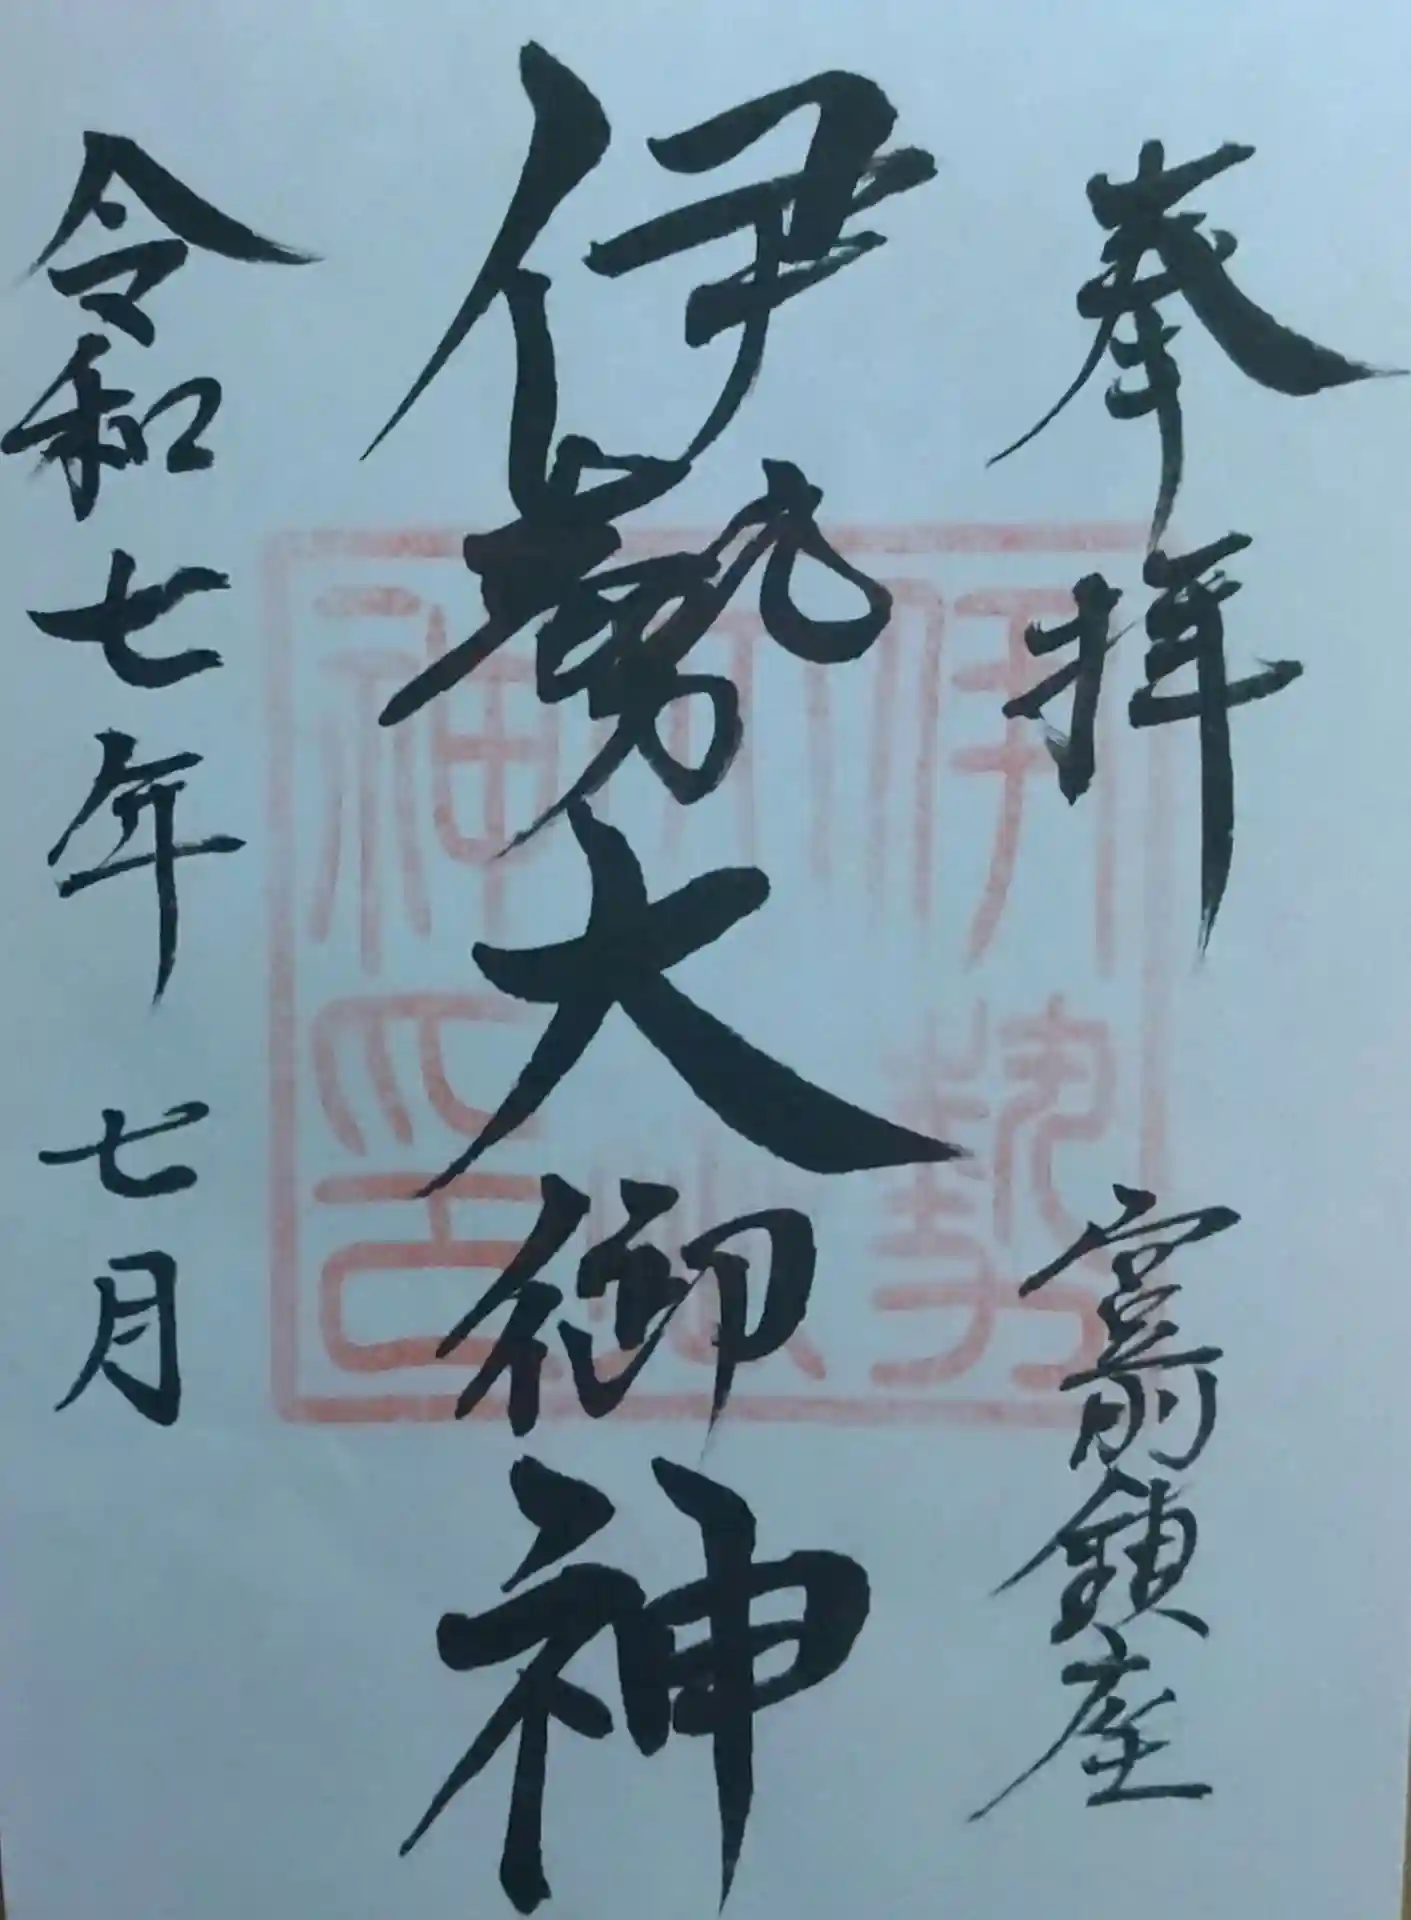 奉拝 宮前鎮座
伊勢大御神
令和七年 七月
伊勢
神印